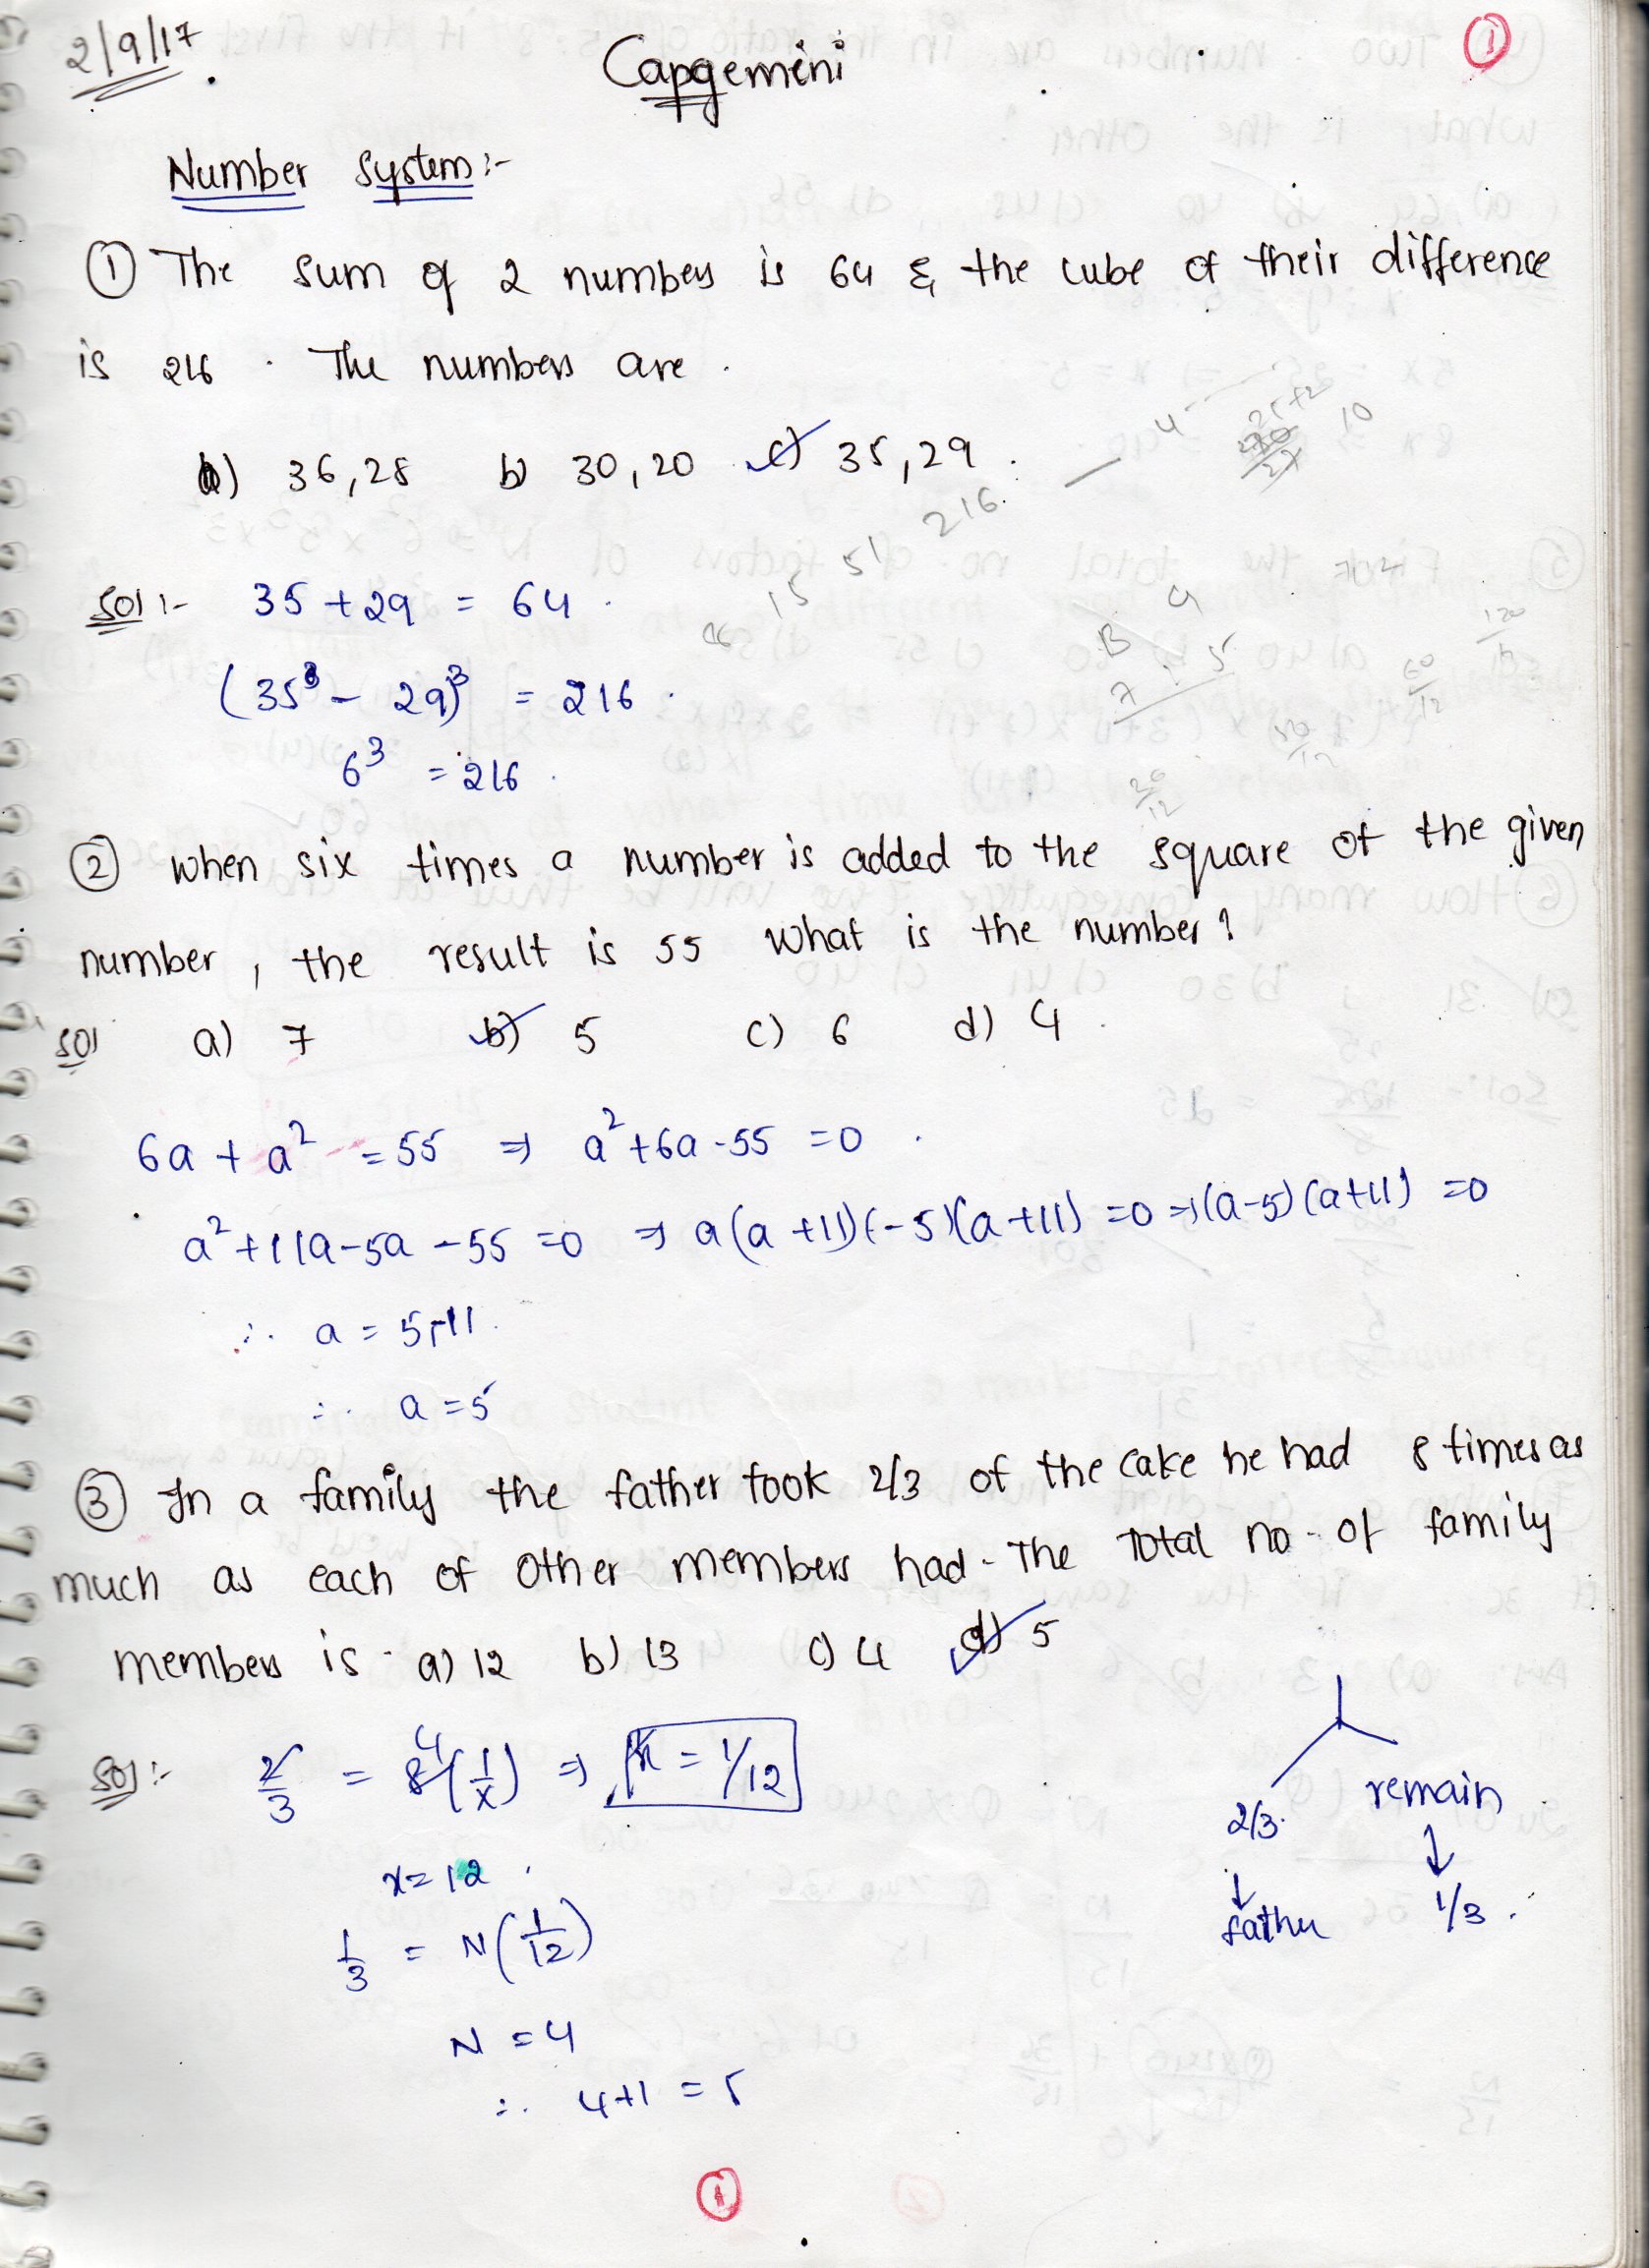 2/9/17
Capgemini
1
Number System:-
① The sum of 2 numbers is 64 & the cube of their difference
is 216. The numbers are.
a) 36,28 b) 30,20 c) 35,29.
Sol:- 35 + 29 = 64.
(35³ - 29)³ = 216.
6³ = 216.
② when six times a number is added to the square of the given
number, the result is 55 what is the number?
Sol a) 7 b) 5 c) 6 d) 4.
6a + a² = 55 ⇒ a²+6a-55 = 0.
a²+11a-5a-55=0 ⇒ a(a+11)(-5)(a+11) = 0 ⇒ (a-5)(a+11) = 0
∴ a = 5,-11.
∴ a = 5
③ In a family the father took 2/3 of the cake he had 8 times as
much as each of other members had. The Total no. of family
members is. a) 12 b) 13 c) 4 d) 5
Sol:- 2/3 = 8 4 (1/x) ⇒ x = 1/12
x = 12.
1/3 = N(1/12)
N = 4
∴ 4+1 = 5
2/3. remain
↓ ↓
father 1/3.
1